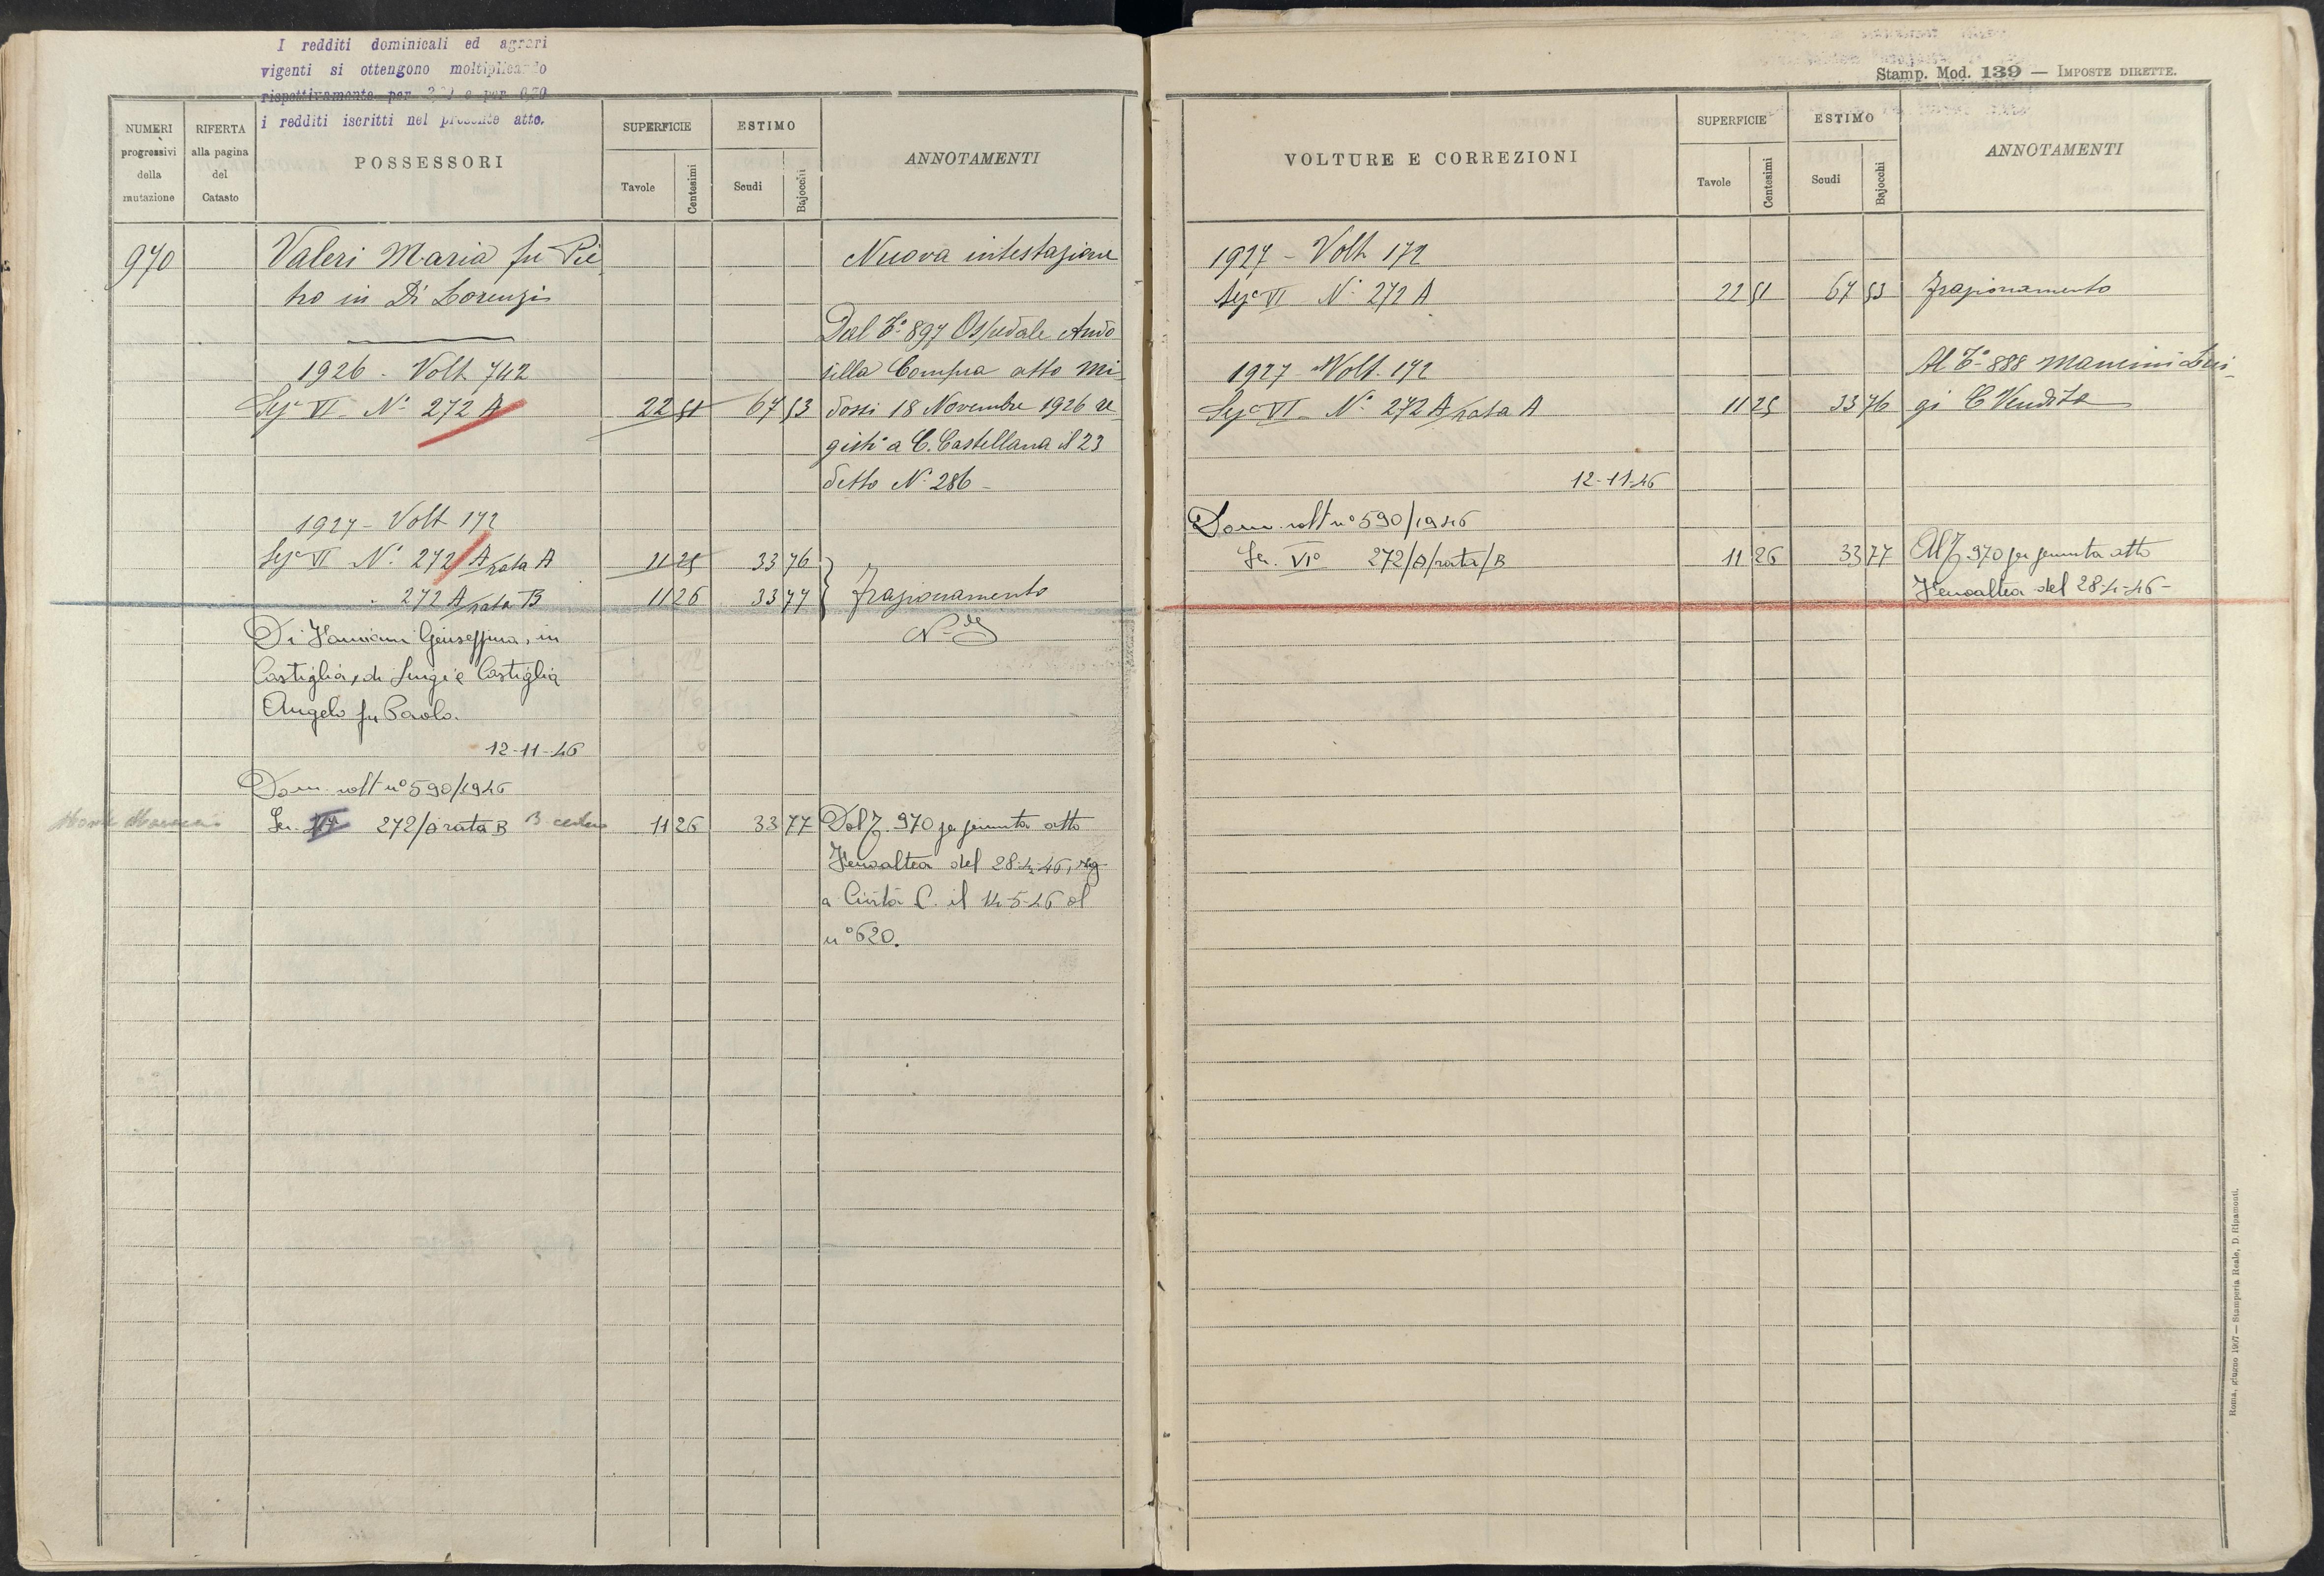 I redditi dominicali ed agrari
vigenti si ottengono moltiplicando
rispettivamente per e per 0,70
i redditi iscritti nel presente atto.
NUMERI progressivi della mutazione
RIFERTA alla pagina del Catasto
POSSESSORI
SUPERFICIE
Tavole
Centesimi
ESTIMO
Scudi
Bajocchi
ANNOTAMENTI
970
Valeri Maria fu Pie
tro in Di Lorenzis
Nuova intestazione
1926 - Volt 742
Sez VI N° 272 A 22 51 67 53
Dal T° 897 Ospedale Ando
silla Compra atto Mi
dossi 18 Novembre 1926 re
gistr a C. Castellana il 23
detto N. 286 -
1927 - Volt 172
Sez VI N° 272/A rata A 11 25 33 76
272 A/rata B 11 26 33 77
frazionamento
Di Giuseppina, in
Castiglia, di Luigi e Castiglia
Angelo fu Paolo.
12-11-46
Dom. volt n° 590/1946
Sez. 272/A rata B 11 26 33 77
Dal T. 970 per permuta atto
del 28-4-46, reg
a Civita C. il 14-5-46 al
n° 620.
Stamp. Mod. 139 — IMPOSTE DIRETTE.
VOLTURE E CORREZIONI
SUPERFICIE
Tavole
Centesimi
ESTIMO
Scudi
Bajocchi
ANNOTAMENTI
1927 - Volt 172
Sez VI N° 272 A 22 51 67 53 frazionamento
1927 Volt. 172
Sez VI N° 272 A/rata A 11 25 33 76
Al T° 888 Mancini Lui-
gi C Vendita
12-11-46
Dom. volt n° 590/1946
Sez. VI° 272/A/rata/B 11 26 33 77
Al T 970 per permuta atto
del 28-4-46 -
Roma, giugno 1907 — Stamperia Reale, D. Ripamonti.